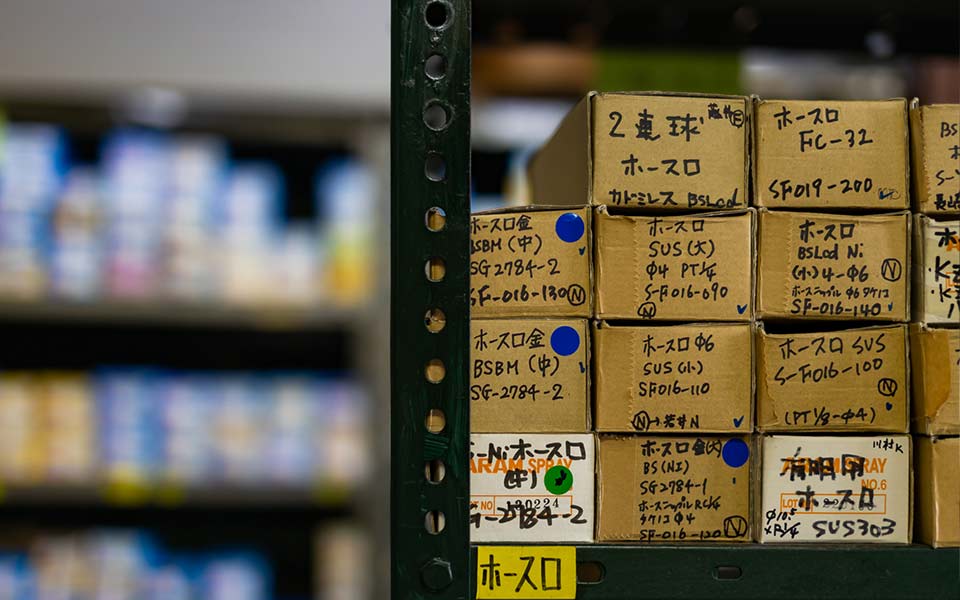 2連球
ホースロ
カドミレス BSLcd
ホースロ
FC-32
SF019-200
ホースロ金
BSBM(中)
SG2784-2
SF-016-130 N
ホースロ
SUS(大)
Φ4 PT1/4
S-F016-090
N
ホースロ
BSLcd Ni
(小)4-Φ6 N
ホースニップル Φ6タケノコ
SF-016-140
ホースロ金
BSBM(中)
SG-2784-2
ホースロ Φ6
SUS(小)
SF016-110
N→若井N
ホースロ SUS
S-F016-100
N
(PT1/8-Φ4)
S-Niホースロ
ARAM SPRAY
(中)
LOT NO
G-2784-2
ホースロ金(大)
BS(NI)
SG2784-1
ホースニップル RC1/4
タケノコ Φ4
SF-016-120 N
川村K
SPRAY
NO.6
LOT
ホースロ
SUS303
ホースロ